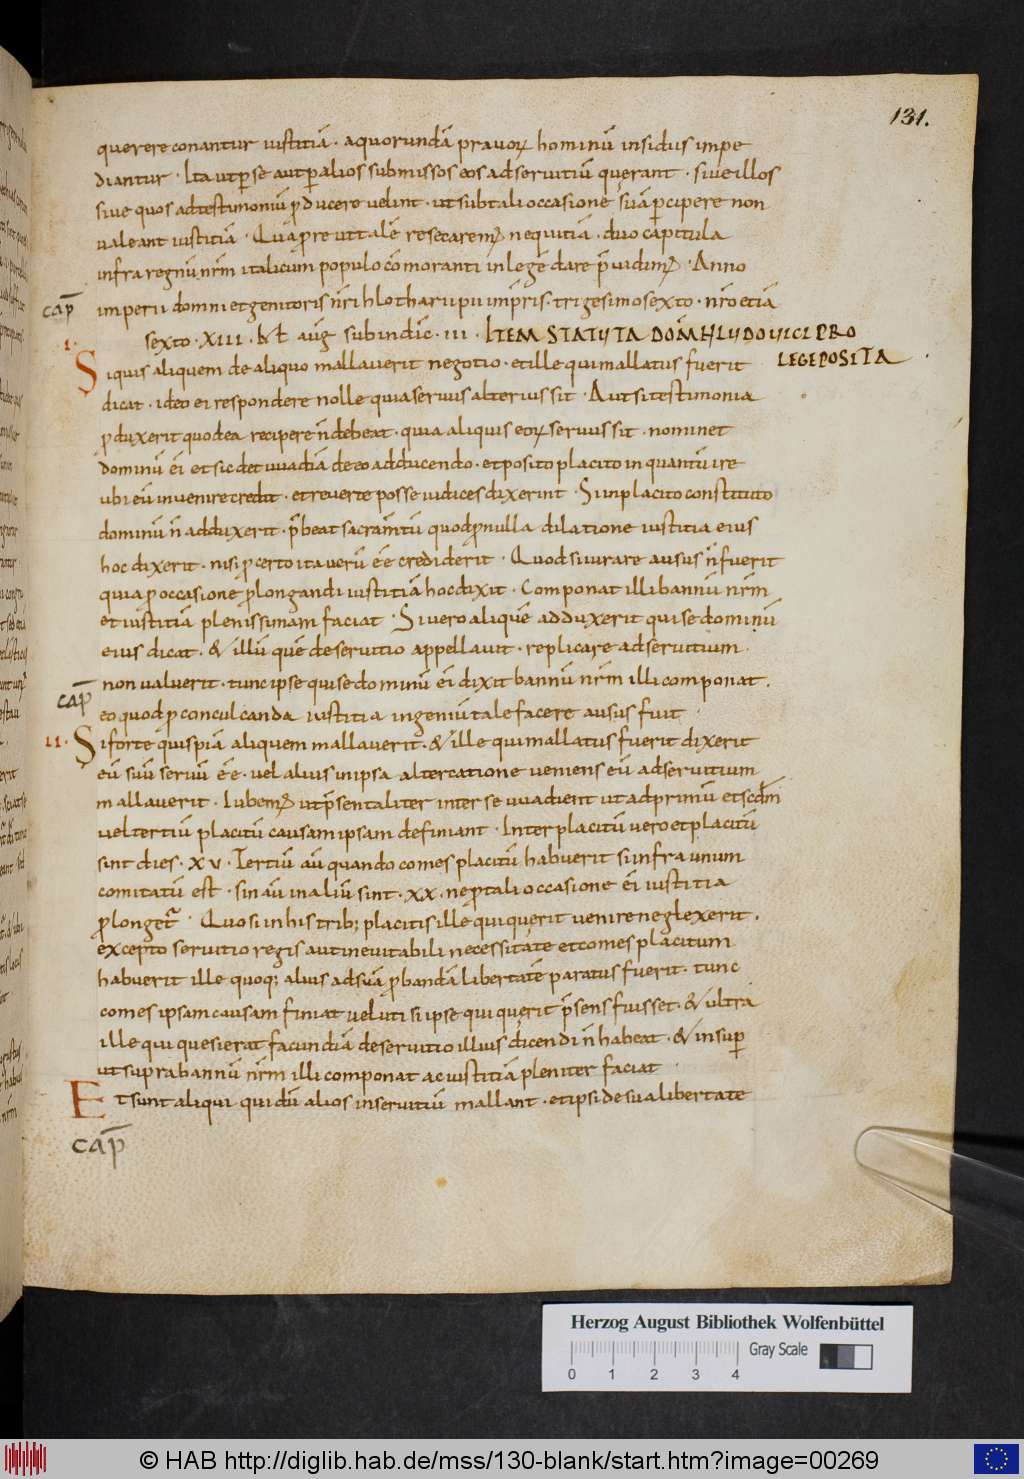 131.
querere conantur iustitiā · a quorundā prauoꝝ hominū insidiis impe
diantur · Ita ut ꝑ se aut ꝑ alios submissos eos ad seruitiū querant · siue illos
siue quos ad testimoniū ꝓducere uelint · ut sub tali occasione suā ꝑcipere non
ualeant iustitiā · Quāꝓre ut talē resecarem⁊ nequitiā · duo capitula
infra regnū nr̄m italicum populo cōmoranti in legē dare p̄uidim⁊ · Anno
cap̄ imperii domni et genitoris nr̄i hlotharii pii imp̄ris · trigesimo sexto · nr̄o etiā
sexto · XIII · kł auḡ sub indic̄ · III · ITEM STATUTA DOM̄ HLUDOUICI PRO
LEGE POSITA
I · Siquis aliquem de aliquo mallauerit negotio · et ille qui mallatus fuerit
dicat · ideo ei respondere nolle quia seruus alterius sit · Aut si testimonia
ꝓduxerit quod ea recipere n̄ debeat · quia aliquis eoꝝ seruus sit · nominet
dominū ei et sic det uuadiā de eo adducendo · et posito placito in quantū ire
ubi eū inuenire credit · et reuerte posse iudices dixerint · Si in placito constituto
dominū n̄ adduxerit · p̄beat sacram̄tū quod ꝓ nulla dilatione iustitia eius
hoc dixerit · nisi ꝓ certo ita uerū eē crediderit · Quod si iurare ausus n̄ fuerit
quia ꝓ occasione ꝓlongandi iustitiā hoc dixit · Componat illi bannū nr̄m
et iustitiā plenissimam faciat · Si uero aliquē adduxerit qui se dominū
eius dicat · & illū quē de seruitio appellauit · replicare ad seruitium
cap̄ non ualuerit · tunc ipse qui se dominū ei dixit bannū nr̄m illi componat ·
eo quod ꝓ conculcanda iustitia ingeniū tale facere ausus fuit ·
II · Si forte quispiā aliquem mallauerit · & ille qui mallatus fuerit dixerit
eū suū seruū eē · uel alius in ipsa altercatione ueniens eū ad seruitium
mallauerit · Iubem⁊ ut p̄sentaliter inter se uuadient ut ad primū et scd̄m
uel tertiū placitū causam ipsam definiant · Inter placitū uero et placitū
sint dies · XV · Tertiū aū quando comes placitū habuerit si infra unum
comitatū est · sin aū in aliū sint · XX · ne ꝑ tali occasione ei iustitia
ꝓlonget᷑ · Quo si in his trib; placitis ille qui querit uenire neglexerit ·
excepto seruitio regis aut ineuitabili necessitate et comes placitum
habuerit ille quoq; alius ad suā ꝓbandā libertatē paratus fuerit · tunc
comes ipsam causam finiat ueluti si ipse qui querit p̄sens fuisset · & ultra
ille qui quesierat facundiā de seruitio illius dicendi n̄ habeat · & insuꝑ
ut supra bannū nr̄m illi componat ac iustitiā pleniter faciat ·
Et sunt aliqui qui dū alios in seruitiū mallant · et ipsi de sua libertate
cap̄
Herzog August Bibliothek Wolfenbüttel
Gray Scale
0 1 2 3 4
© HAB http://diglib.hab.de/mss/130-blank/start.htm?image=00269